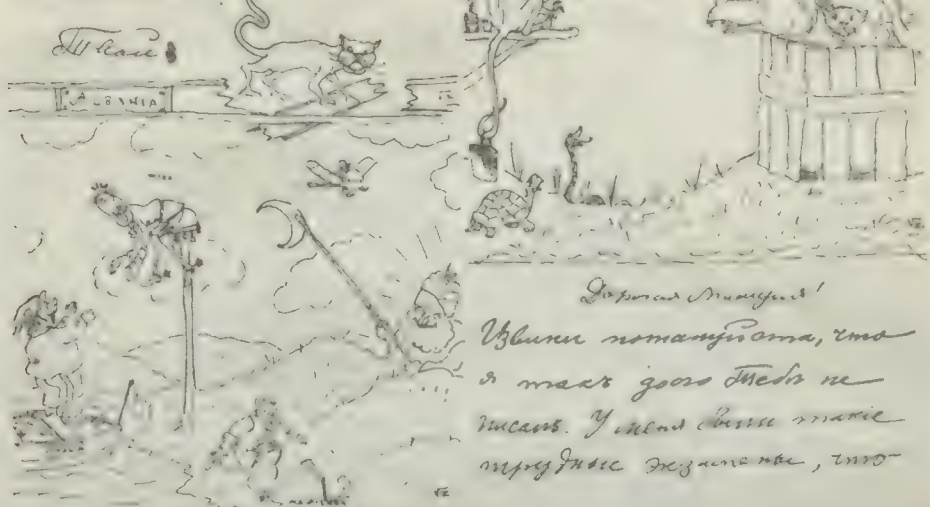 Твой
ALBANIA
Дорогая
Извини пожалуйста, что
я такъ долго Тебѣ не
писалъ. У меня были такіе
трудные экзамены, что